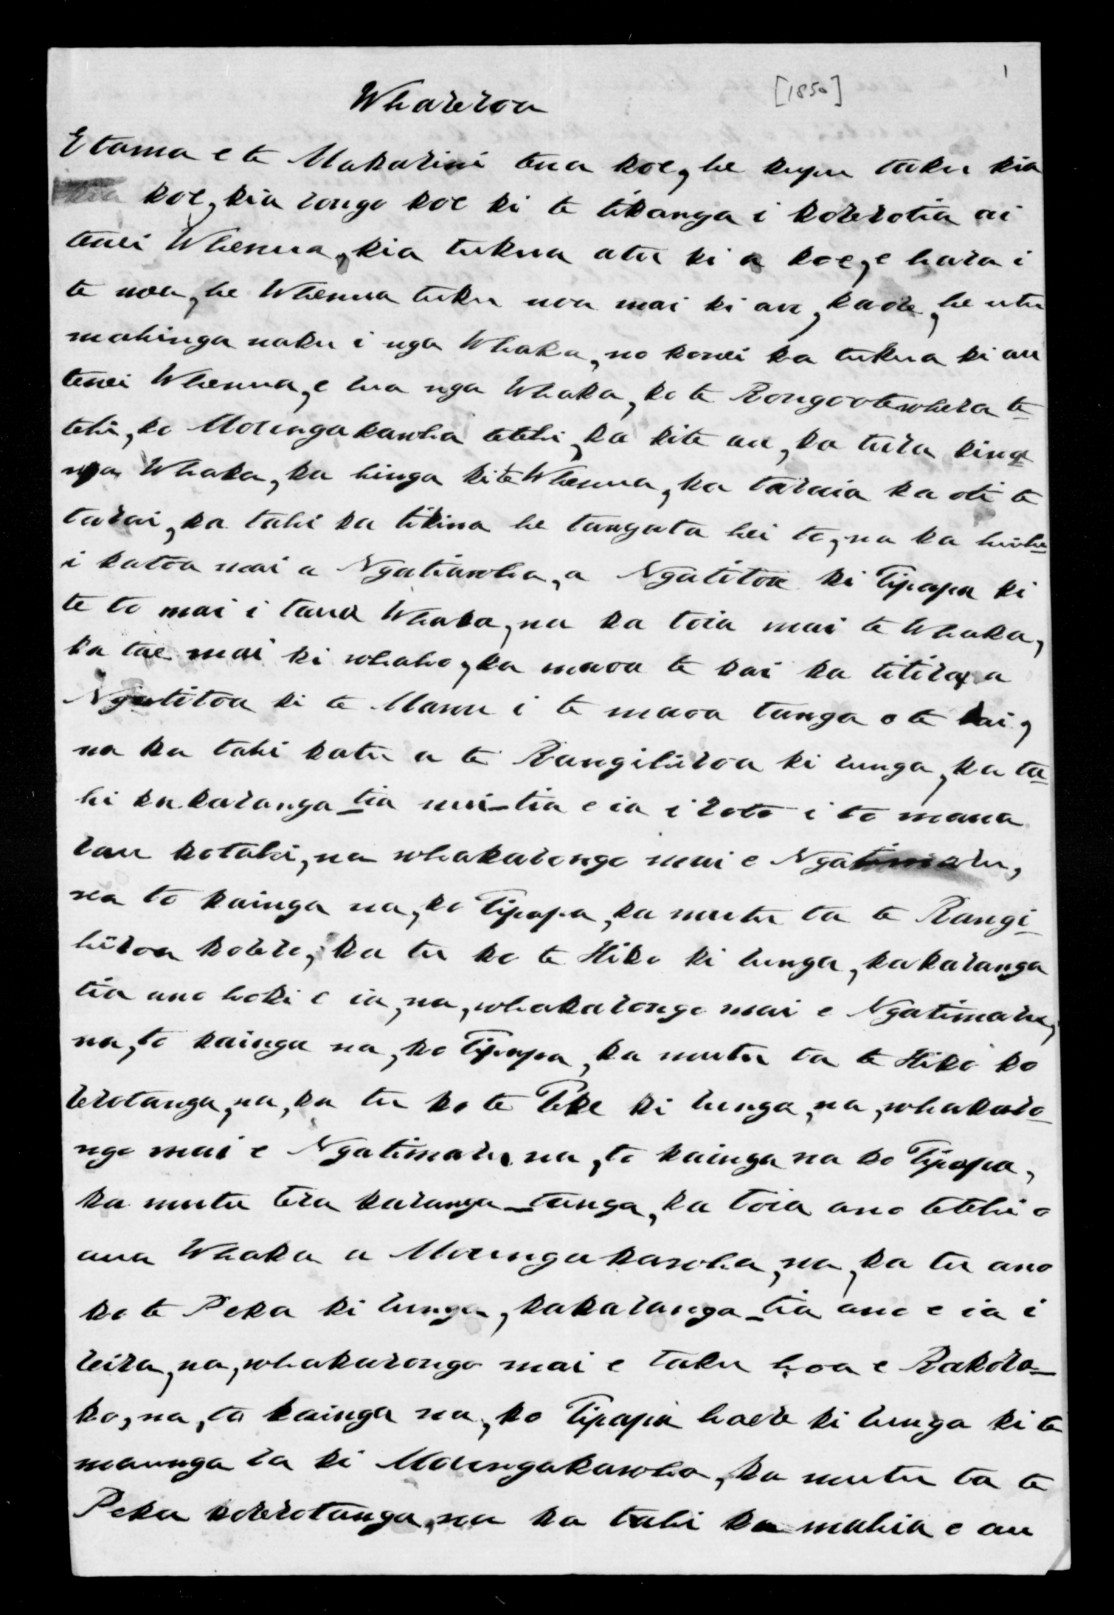 Whareroa [1850] 1
E tama e te Makarini tena koe, he kupu taku kia
koe, kia rongo koe ki te tikanga i korerotia ai
tenei Whenua, kia tukua atu ki a koe, e hara i
te noa, he Whenua tuku noa mai ki au, kaore, he utu
mahinga naku i nga Whaka, no konei ka tukua ki au
tenei Whenua, e rua nga Whaka, ko te Rongootewhera te
tehi, ko Moungakawha tetehi, ka kite au, ka turakina
nga Whaka, ka hinga ki te Whenua, ka taraia ka oti te
tarai, ka tahi ka tikina he tangata hei to, na ka huihu
i katoa mai a Ngatiawha, a Ngatitoa ki Tipapa ki
te to mai i taua Whaka, na ka toia mai te Whaka,
ka tae mai ki whaho, ka maoa te kai ka titiro a
Ngatitoa ki te Manu i te maoa tanga o te kai,
na ka tahi ka tu a te Rangihiiroa ki runga, ka ta
hi ka karanga-tia mai-tia e ia i roto i to mana
rau kotahi, na whakarongo mai e Ngatimaru,
na to kainga na, ko Tipapa, ka mutu ta te Rangi
hiiroa korero, ka tu ko te Hiko ki runga, ka karanga
tia ano hoki e ia, na, whakarongo mai e Ngatimaru,
na, to kainga na, ko Tipapa, ka mutu ta te Hiko ko
rerotanga, na, ka tu ko te Peke ki runga, na, whakaro
ngo mai e Ngatimaru na, to kainga na ko Tipapa,
ka mutu tera karanga-tanga, ka toia ano tetehi o
aua Whaka a Moungakawha, na, ka tu ano
ko te Peka ki runga, ka karanga-tia ano e ia i
reira, na, whakarongo mai e taku hoa e Rakora
ko, na, to kainga na, ko Tipapa haere ki runga ki te
maunga ra ki Moungakawha, ka mutu ta te
Peka korerotanga, na ka tahi ka mahia e au